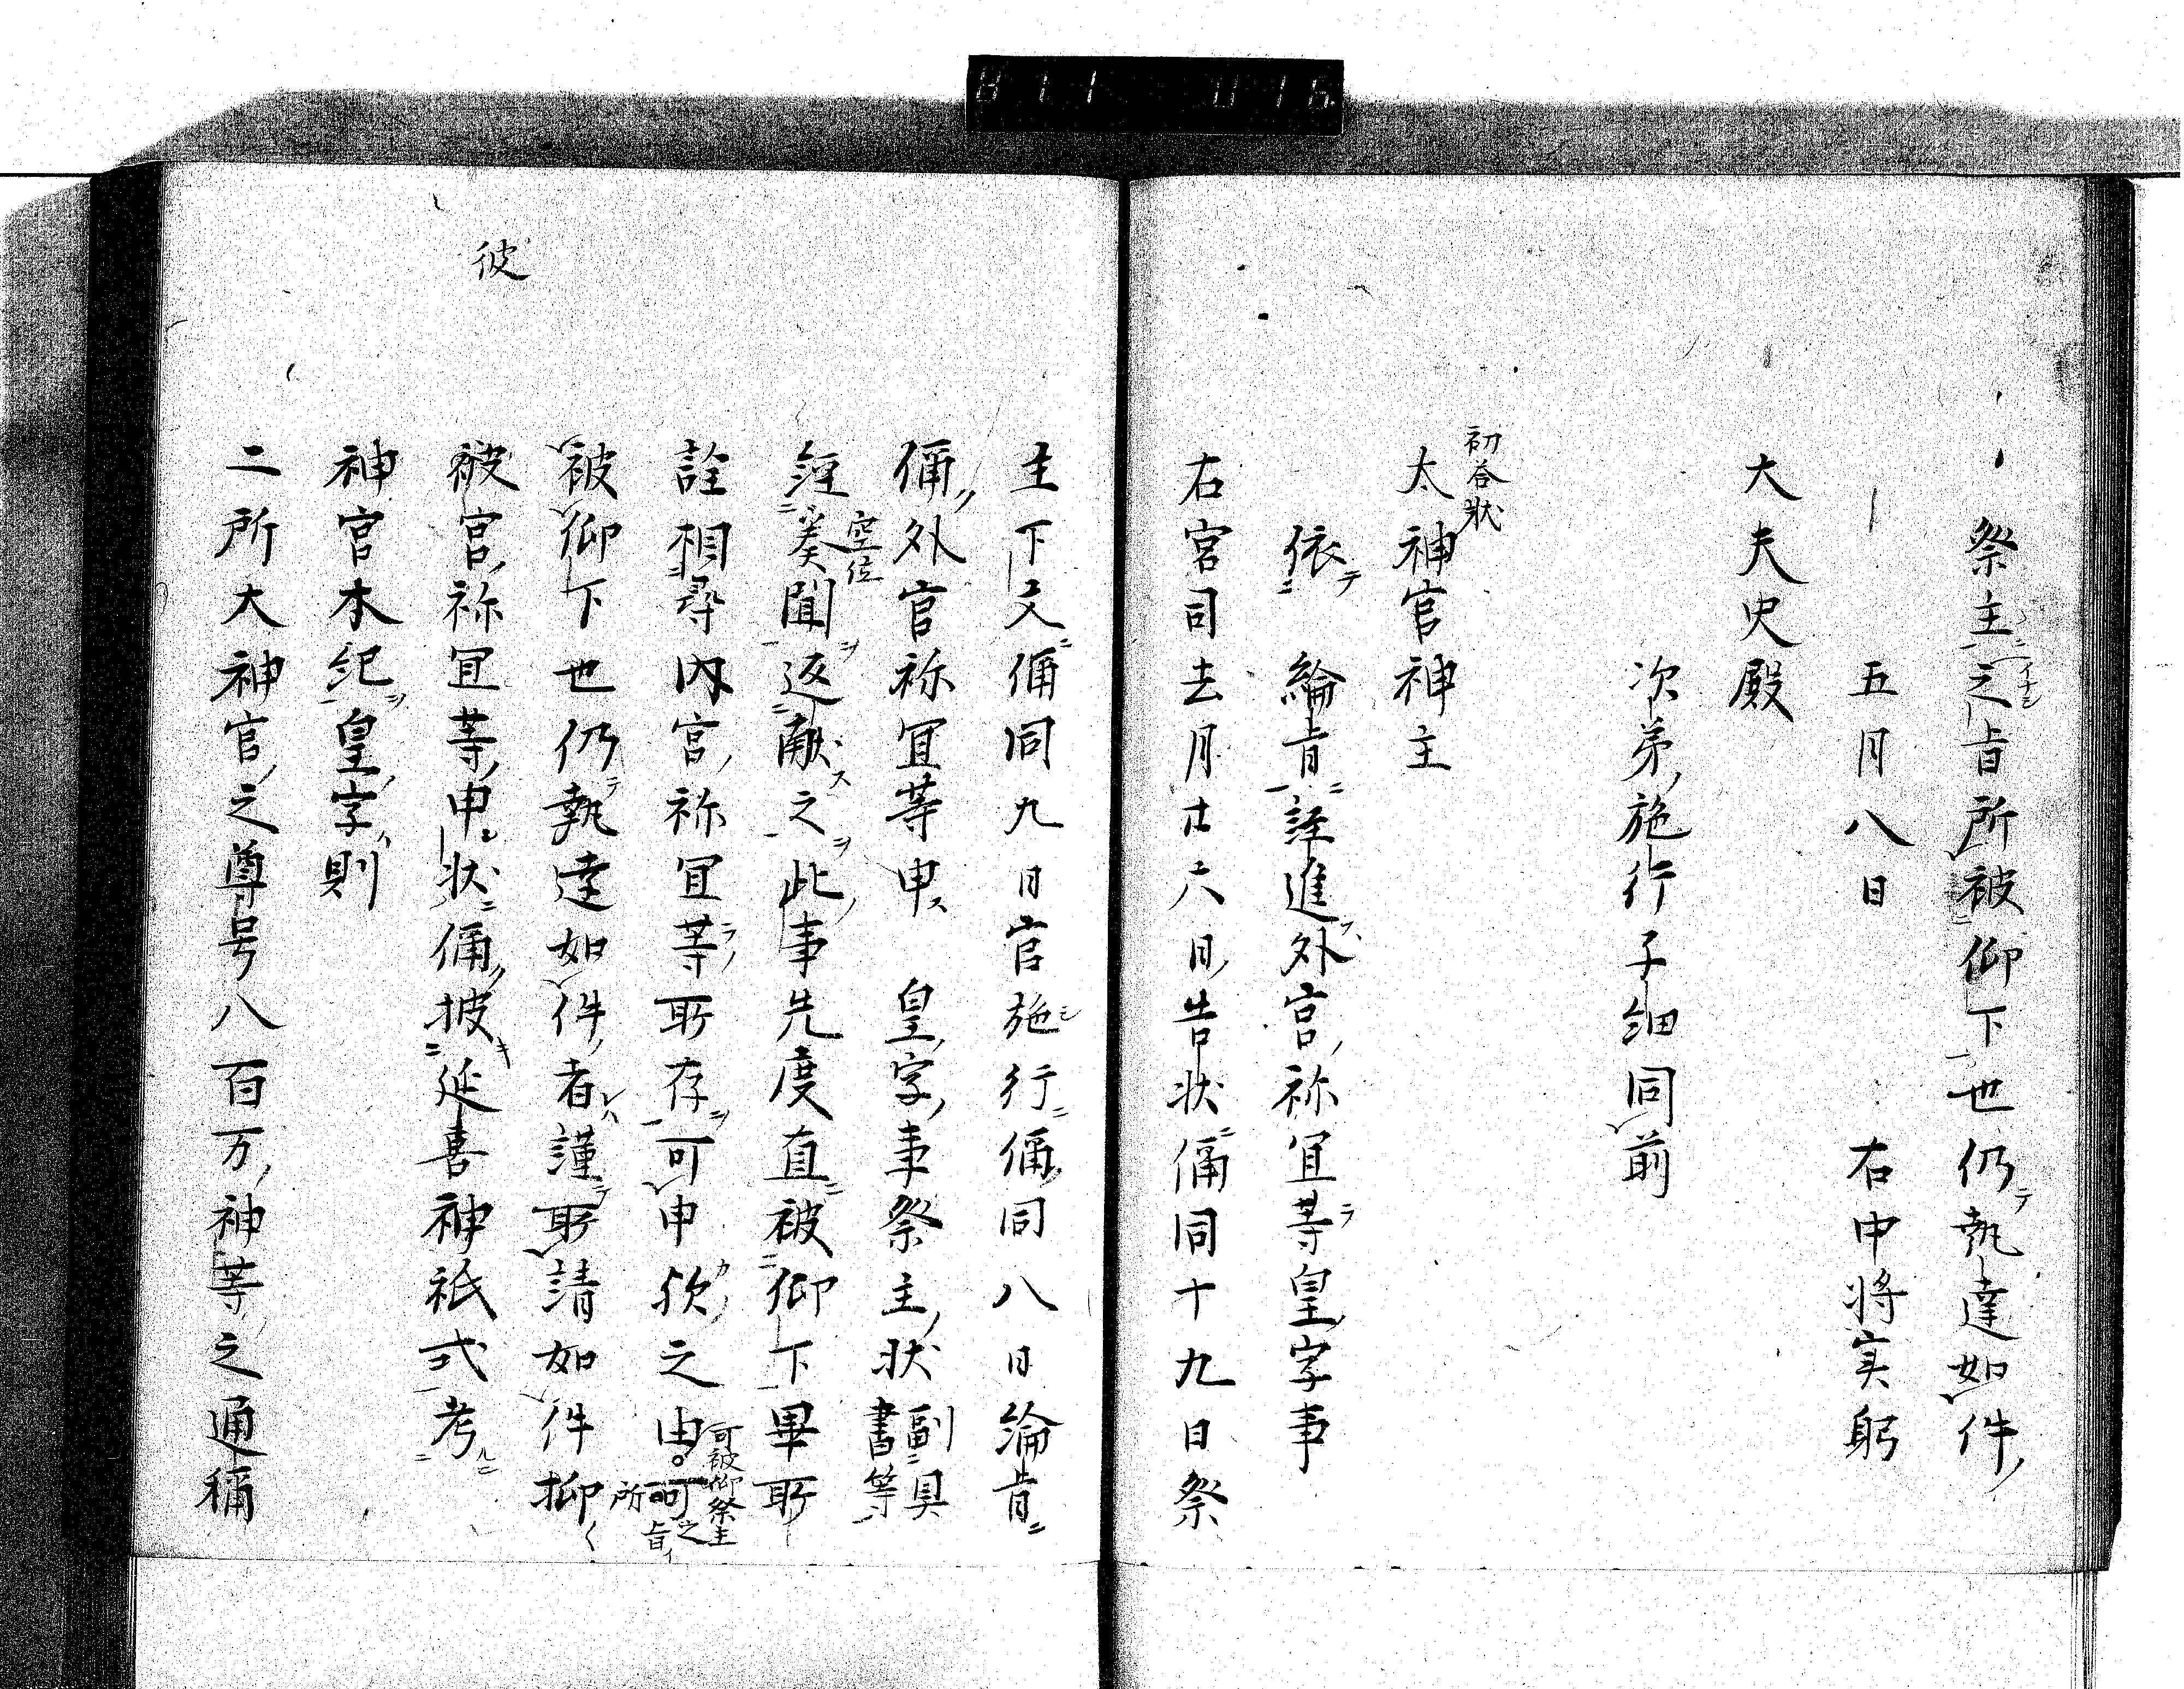 祭主之旨所被仰下也仍執達如件
五月八日　右中将実躬
大夫史殿
次第施行子細同前
初答状
太神宮神主
依　綸旨註進外宮祢宜等皇字事
右宮司去月廿六日告状偁同十九日祭
主下文偁同九日官施行偁同八日綸旨
偁外宮祢宜等申　皇字事祭主状副具書等
經奏聞返献之此事先度直被仰下畢所
空位
詮相尋内宮祢宜等所存可申欤之由可
可被仰祭主之旨イ
所
被仰下也仍執達如件者謹所請如件抑
彼
被宮祢宜等申状偁披延喜神祇式考
神宮本紀皇字則
二所大神宮之尊号八百万神等之通稱